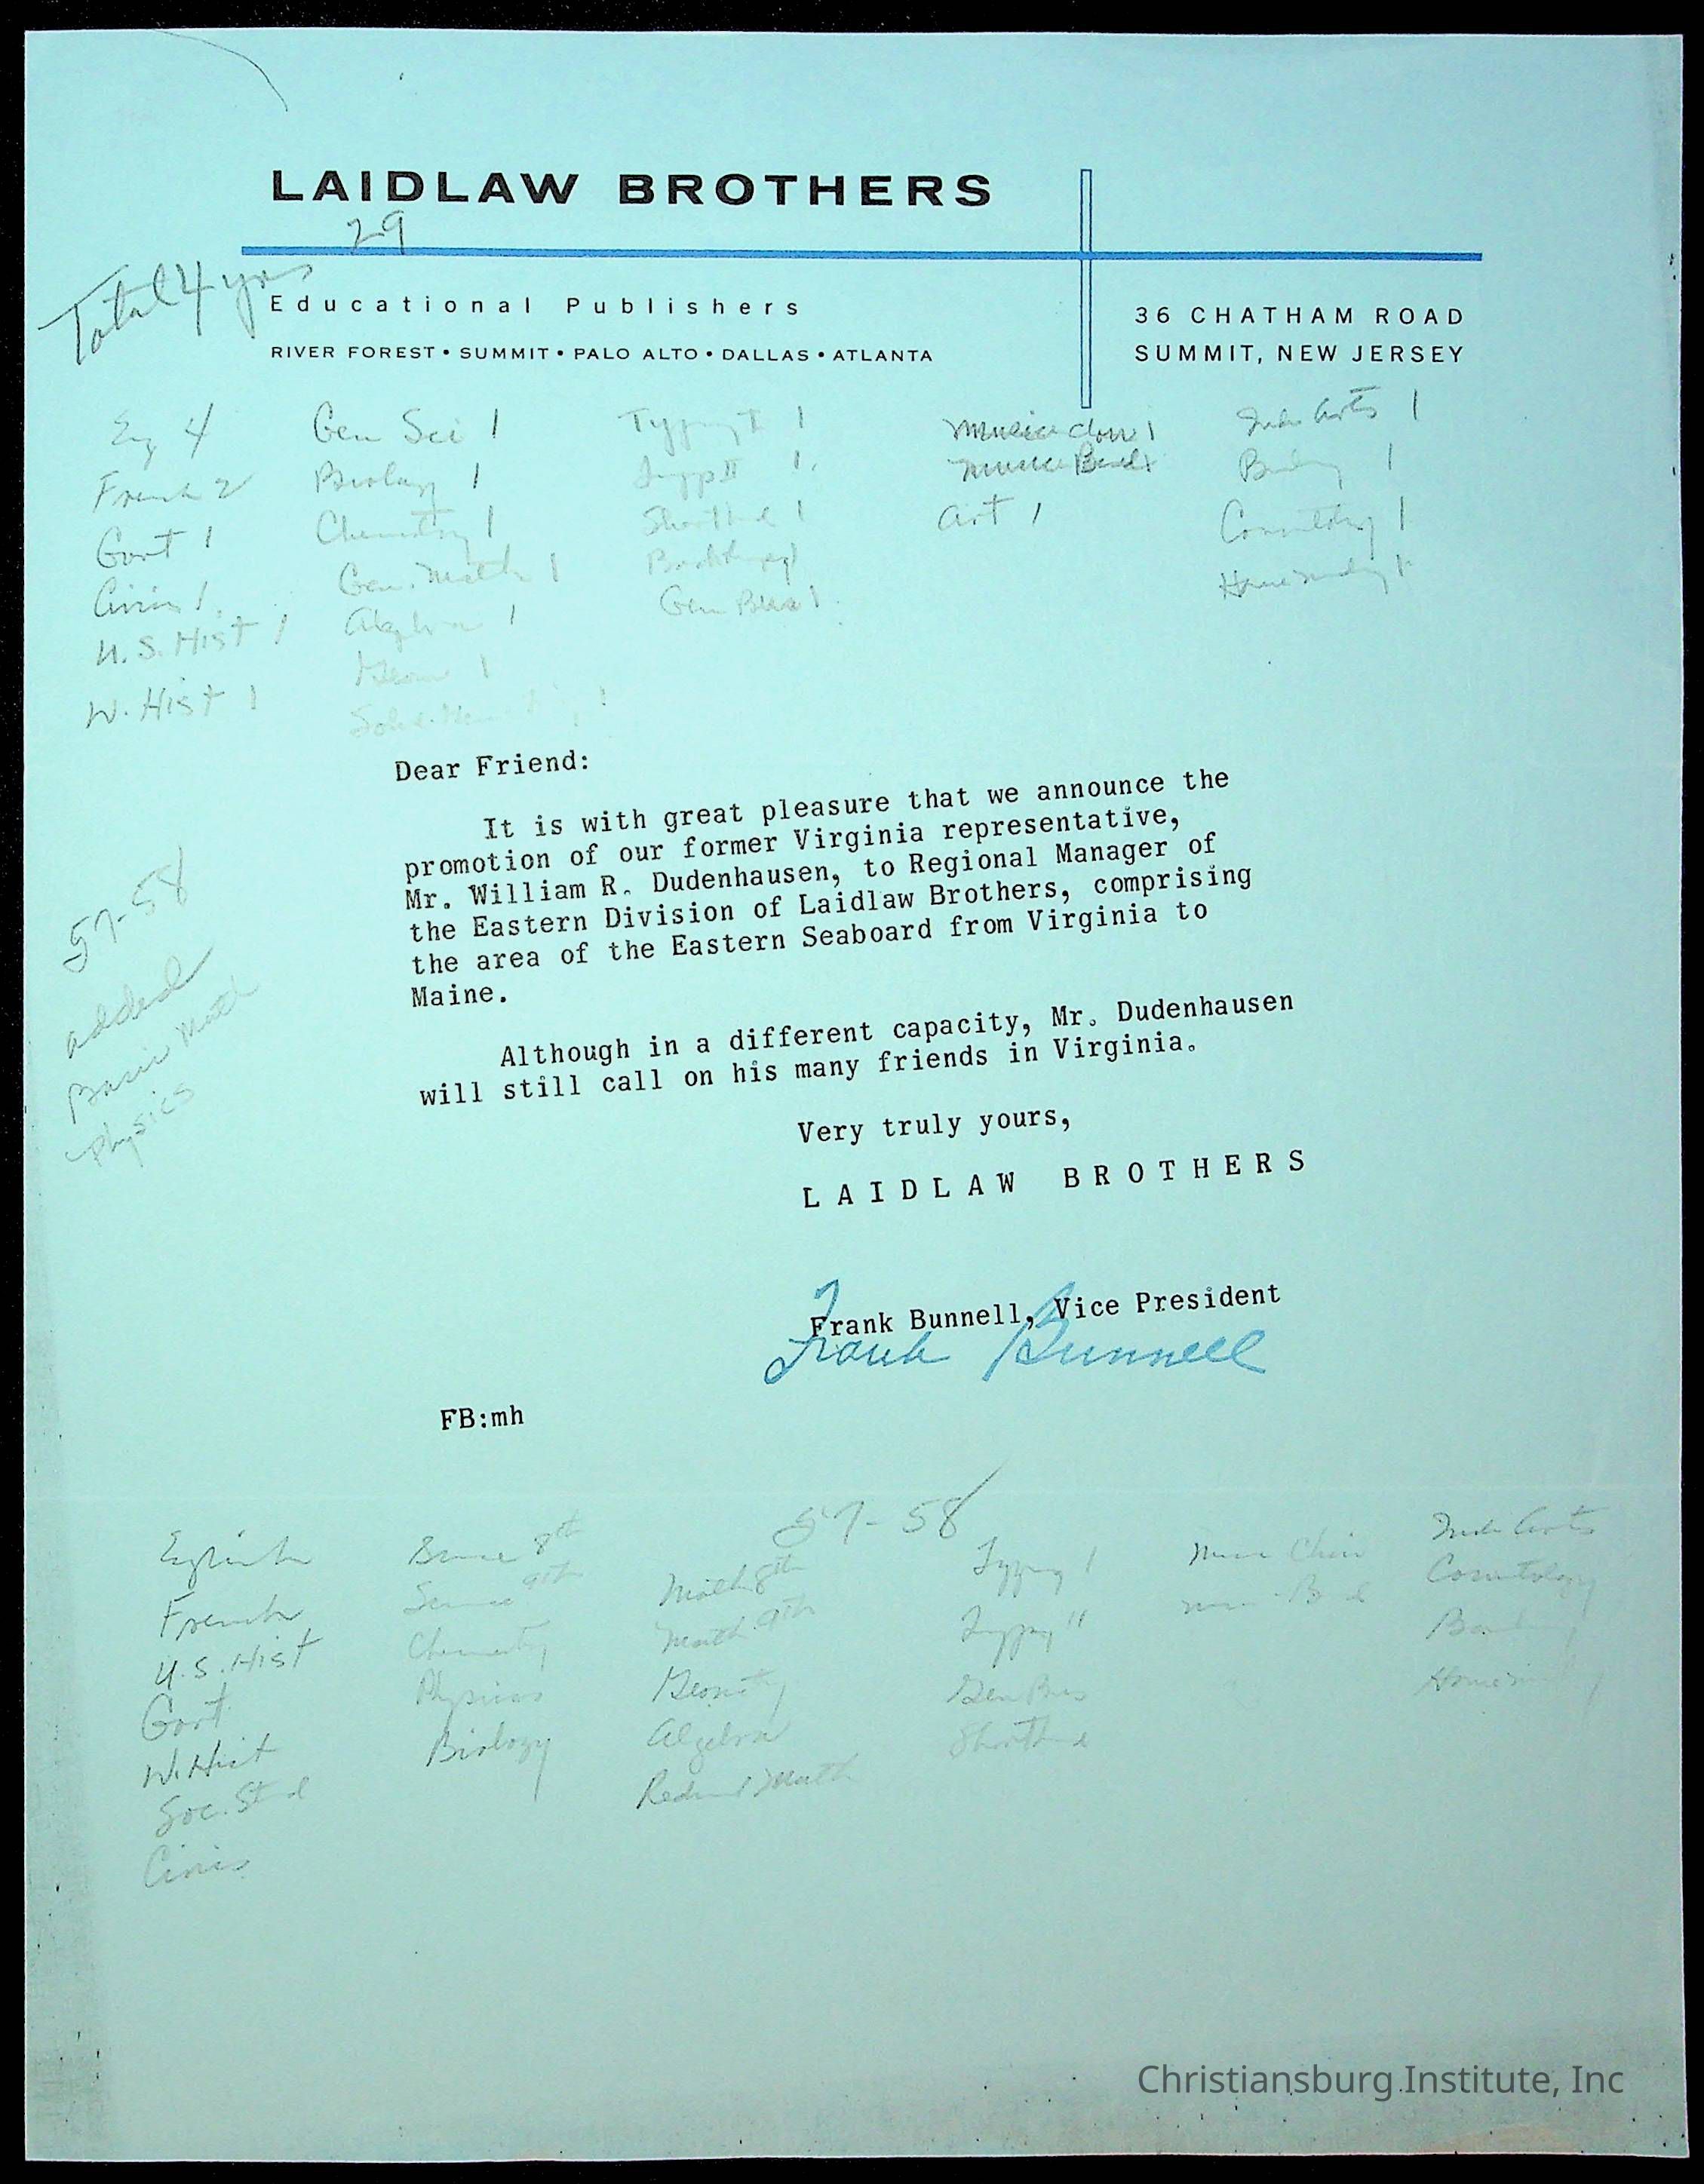 LAIDLAW BROTHERS
29
Total 4 yrs
Educational Publishers
RIVER FOREST • SUMMIT • PALO ALTO • DALLAS • ATLANTA
36 CHATHAM ROAD
SUMMIT, NEW JERSEY
Eng 4
French 2
Govt 1
Civics 1
U.S. Hist 1
W. Hist 1
Gen Sci 1
Biology 1
Chemistry 1
Gen. Math 1
Algebra 1
Geom 1
Typing I 1
Typ II 1
Shorthand 1
Gen Bus 1
Art 1
Dear Friend:
It is with great pleasure that we announce the
promotion of our former Virginia representative,
Mr. William R. Dudenhausen, to Regional Manager of
the Eastern Division of Laidlaw Brothers, comprising
the area of the Eastern Seaboard from Virginia to
Maine.
Although in a different capacity, Mr. Dudenhausen
will still call on his many friends in Virginia.
57-58
added
Basic Math
Physics
Very truly yours,
LAIDLAW BROTHERS
Frank Bunnell, Vice President
Frank Bunnell
FB:mh
57-58
English
French
U.S. Hist
Govt
W. Hist
Soc. St
Civics
8th
9th
Chemistry
Physics
Biology
Math 8th
Math 9th
Geometry
Algebra
Math
Typing I
Typing II
Gen Bus
Shorthand
Cosmetology
Christiansburg Institute, Inc